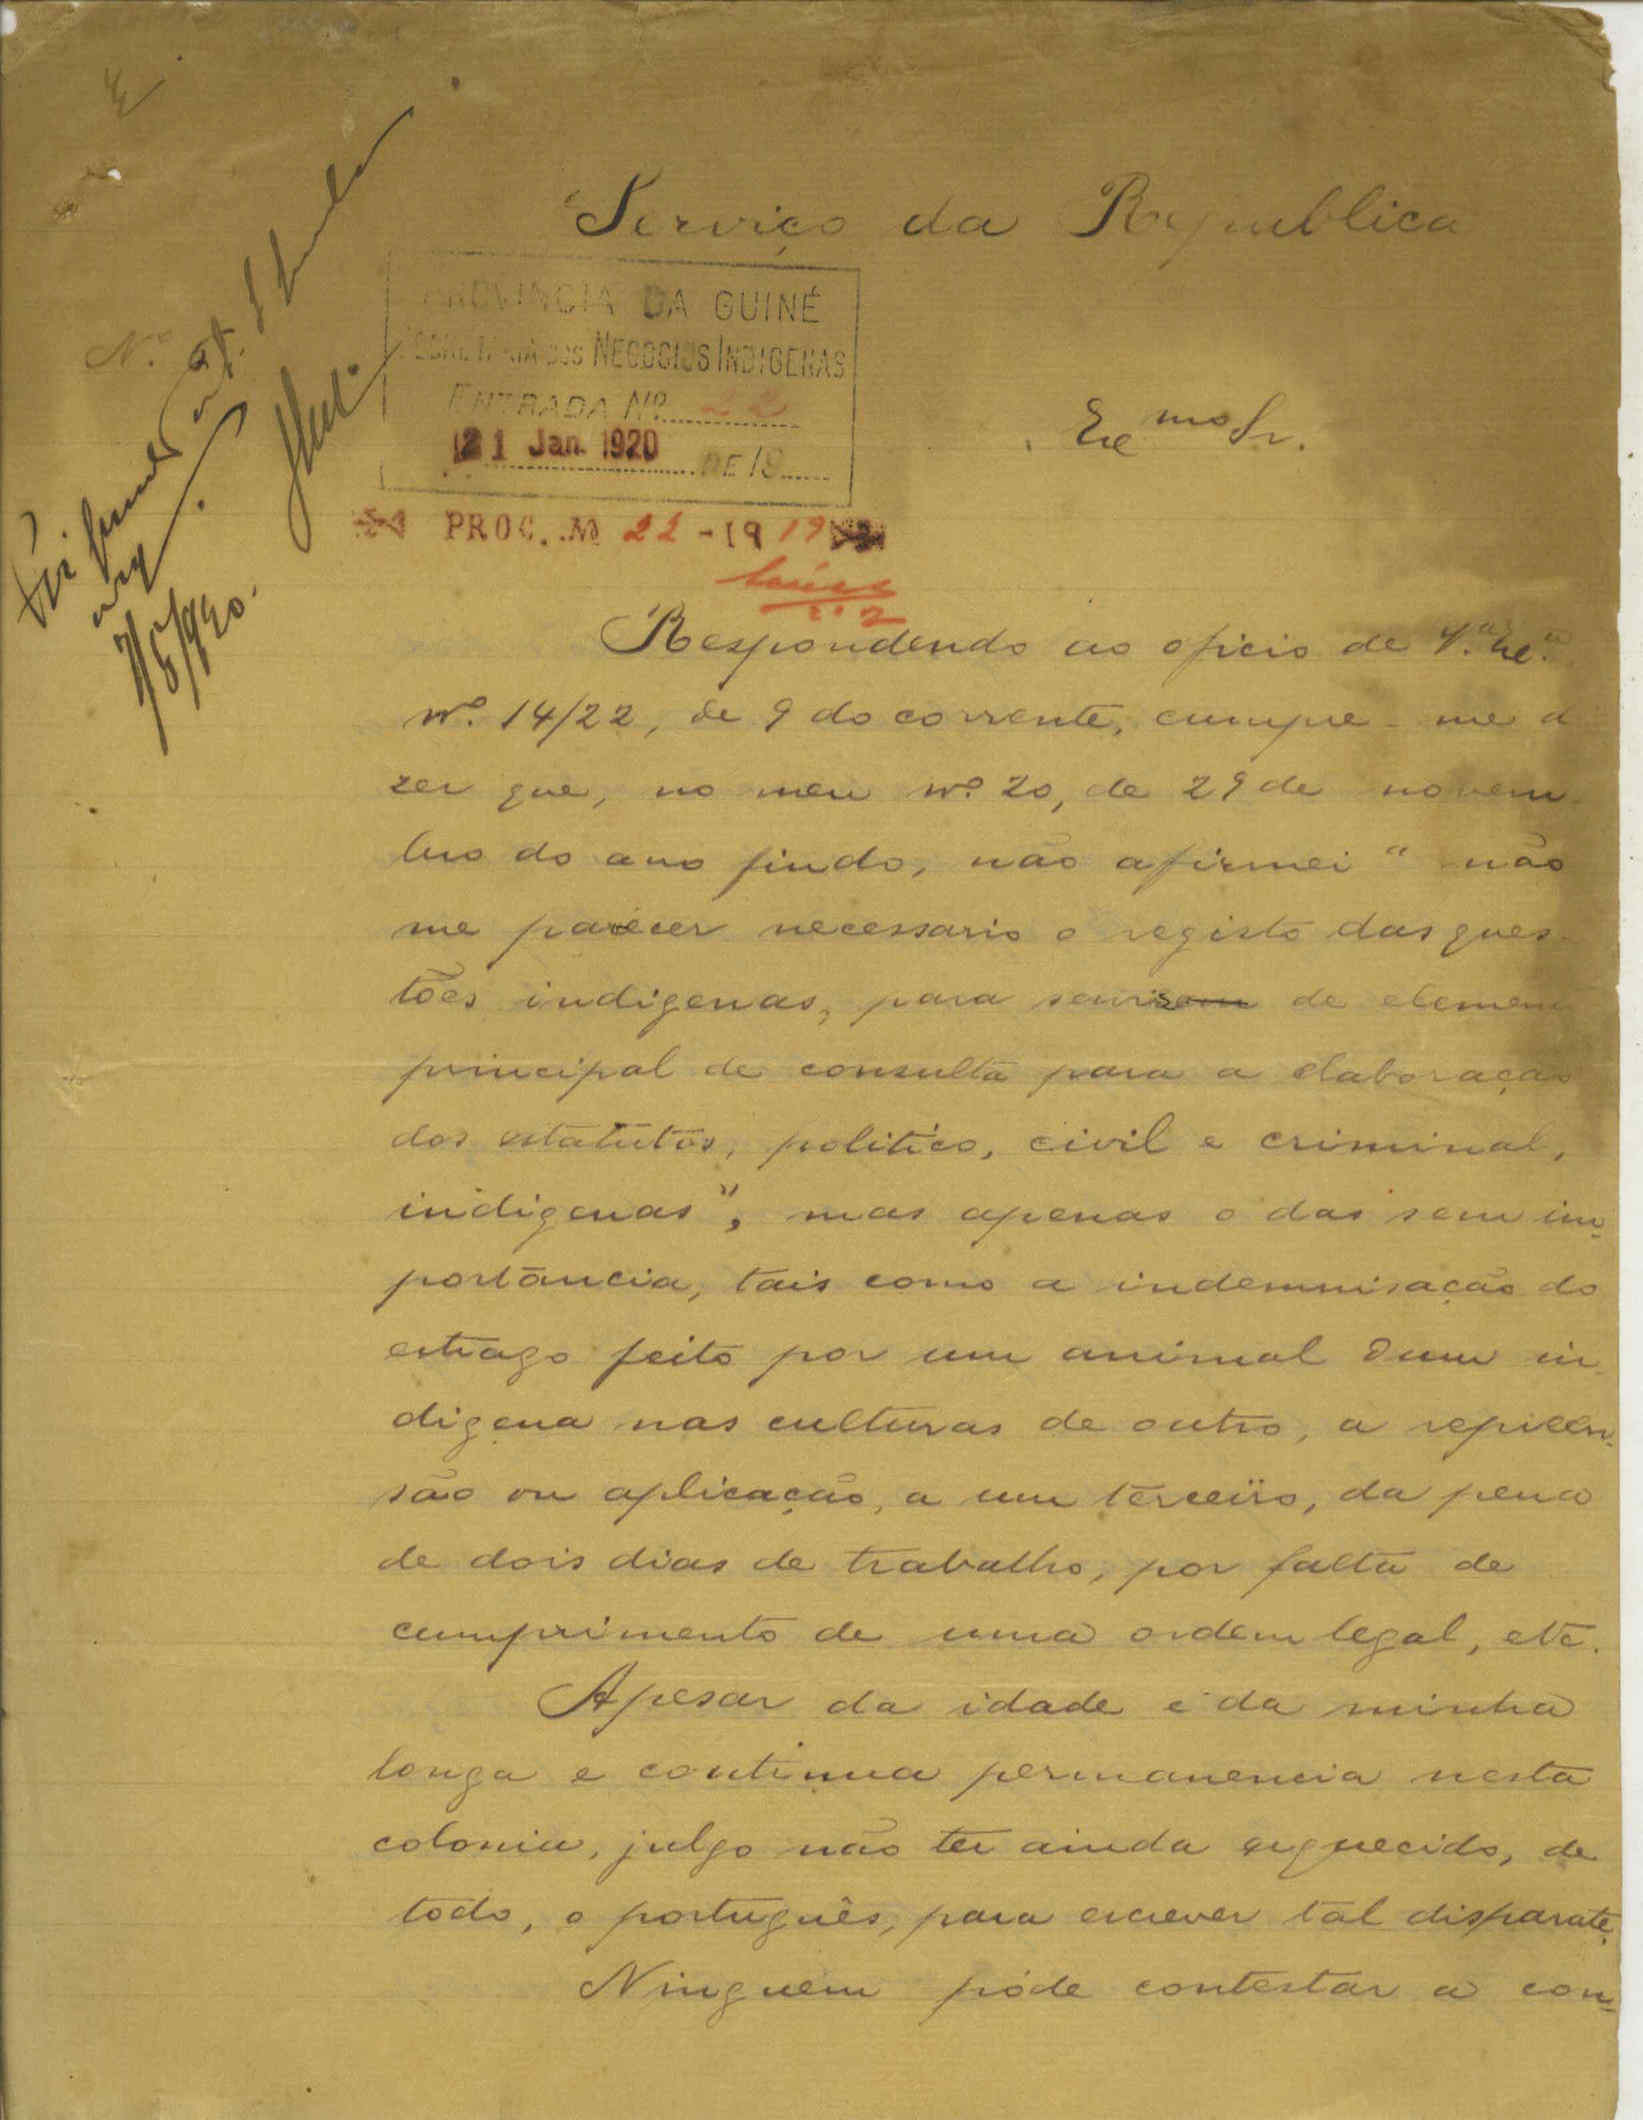 Serviço da Republica
PROVINCIA DA GUINÉ
SECRETARIA DOS NEGOCIOS INDIGENAS
ENTRADA Nº 22
21 Jan. 1920 DE 19
PROC. Nº 22 - 1919
Nº
Exmo Sr.
7/5/920.
Respondendo ao oficio de V.ª Ex.ª
nº 14/22, de 9 do corrente, cumpre-me d
zer que, no meu nº 20, de 29 de novem-
bro do ano findo, não afirmei "não
me parecer necessario o registo das ques-
tões indigenas, para servirem de elemen
principal de consulta para a elaboração
dos estatutos, politico, civil e criminal,
indigenas", mas apenas o das sem im-
portância, tais como a indemnisação do
estrago feito por um animal dum in-
digena nas culturas de outro, a repreen-
são ou aplicação, a um terceiro, da pena
de dois dias de trabalho, por falta de
cumprimento de uma ordem legal, etc.
Apesar da idade e da minha
longa e continua permanencia nesta
colonia, julgo não ter ainda esquecido, de
todo, o português, para escrever tal disparate.
Ninguem póde contestar a con-